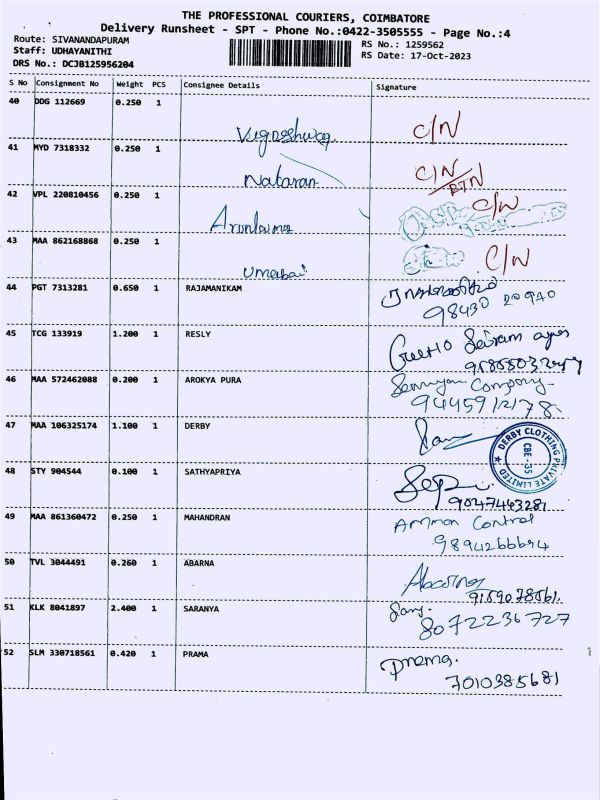 THE PROFESSIONAL COURIERS, COIMBATORE
Delivery Runsheet - SPT - Phone No.:0422-3505555 - Page No.:4
Route: SIVANANDAPURAM
RS No.: 1259562
Staff: UDHAYANITHI
RS Date: 17-Oct-2023
DRS No.: DCJB125956204
S No Consignment No Weight PCS Consignee Details Signature
40 DDG 112669 0.250 1
Vigneshwar C/N
41 MYD 7318332 0.250 1
Nataran C/N
RTN
42 VPL 220810456 0.250 1
C/N
43 MAA 862168868 0.250 1
Umabai C/N
44 PGT 7313281 0.650 1 RAJAMANIKAM
98430 20940
45 TCG 133919 1.200 1 RESLY
Sairam
46 MAA 572462088 0.200 1 AROKYA PURA
Company
9445912178
47 MAA 106325174 1.100 1 DERBY
DERBY CLOTHING PRIVATE LIMITED
CBE-35
48 STY 904544 0.100 1 SATHYAPRIYA
9047463281
49 MAA 861360472 0.250 1 MAHANDRAN
Amman Control
9894266694
50 TVL 3044491 0.260 1 ABARNA
Abarna
9159078561
51 KLK 8041897 2.400 1 SARANYA
Sary.
8072236727
52 SLM 330718561 0.420 1 PRAMA
Prema.
7010385681